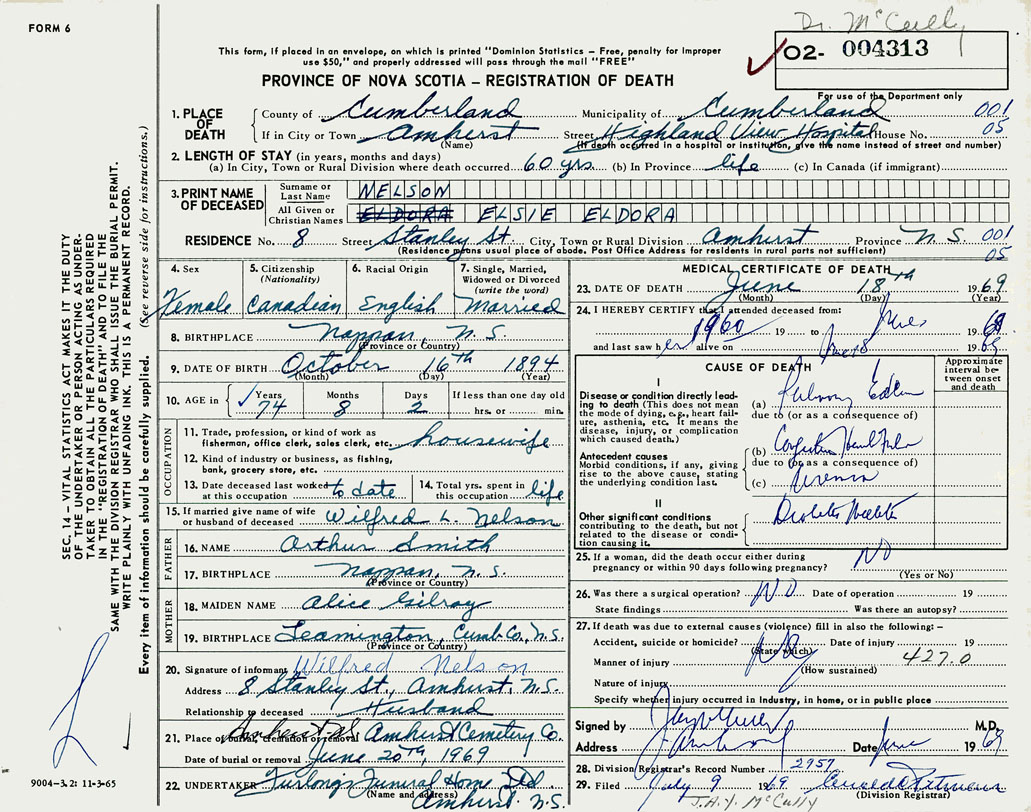 Dr. McCully
FORM 6
This form, if placed in an envelope, on which is printed "Dominion Statistics – Free, penalty for improper
use $50," and properly addressed will pass through the mail "FREE"
02- 004313
PROVINCE OF NOVA SCOTIA – REGISTRATION OF DEATH
For use of the Department only
1. PLACE OF DEATH County of Cumberland Municipality of Cumberland 001
If in City or Town Amherst Street Highland View Hospital House No. 05
(Name) (If death occurred in a hospital or institution, give the name instead of street and number)
2. LENGTH OF STAY (in years, months and days)
(a) In City, Town or Rural Division where death occurred 60 yrs. (b) In Province life (c) In Canada (if immigrant)
3. PRINT NAME OF DECEASED Surname or Last Name NELSON
All Given or Christian Names ELDORA ELSIE ELDORA
RESIDENCE No. 8 Street Stanley St. City, Town or Rural Division Amherst Province N.S. 001
(Residence means usual place of abode. Post Office Address for residents in rural parts not sufficient) 05
4. Sex 5. Citizenship (Nationality) 6. Racial Origin 7. Single, Married, Widowed or Divorced (write the word)
Female Canadian English Married
8. BIRTHPLACE Nappan, N.S.
(Province or Country)
9. DATE OF BIRTH October 16th 1894
(Month) (Day) (Year)
10. AGE in Years Months Days If less than one day old
74 8 2 hrs. or min.
OCCUPATION
11. Trade, profession, or kind of work as
fisherman, office clerk, sales clerk, etc. housewife
12. Kind of industry or business, as fishing,
bank, grocery store, etc.
13. Date deceased last worked at this occupation to date 14. Total yrs. spent in this occupation life
15. If married give name of wife or husband of deceased Wilfred L. Nelson
FATHER
16. NAME Arthur Smith
17. BIRTHPLACE Nappan, N.S.
(Province or Country)
MOTHER
18. MAIDEN NAME Alice Gilroy
19. BIRTHPLACE Leamington, Cumb. Co., N.S.
(Province or Country)
20. Signature of informant Wilfred Nelson
Address 8 Stanley St., Amherst, N.S.
Relationship to deceased Husband
21. Place of burial, cremation or removal Amherst Cemetery Co.
Date of burial or removal June 20th, 1969
22. UNDERTAKER Furlong Funeral Home Ltd.
(Name and address) Amherst, N.S.
MEDICAL CERTIFICATE OF DEATH
23. DATE OF DEATH June 18th 1969
(Month) (Day) (Year)
24. I HEREBY CERTIFY that I attended deceased from:
1960 19 to June 1969
and last saw her alive on June 18 1969
CAUSE OF DEATH
Approximate interval between onset and death
I
Disease or condition directly leading to death (This does not mean the mode of dying, e.g., heart failure, asthenia, etc. It means the disease, injury, or complication which caused death.)
(a) Pulmonary Edema
due to (or as a consequence of)
Antecedent causes
Morbid conditions, if any, giving rise to the above cause, stating the underlying condition last.
(b) Congestive Heart Failure
due to (or as a consequence of)
(c) Uremia
II
Other significant conditions contributing to the death, but not related to the disease or condition causing it.
Diabetes Mellitus
25. If a woman, did the death occur either during
pregnancy or within 90 days following pregnancy? NO
(Yes or No)
26. Was there a surgical operation? NO Date of operation 19
State findings Was there an autopsy?
27. If death was due to external causes (violence) fill in also the following: –
Accident, suicide or homicide? Date of injury 19
(State which)
Manner of injury 427.0
(How sustained)
Nature of injury
Specify whether injury occurred in industry, in home, or in public place
Signed by M.D.
Address Amherst Date June 1969
28. Division Registrar's Record Number 2957
29. Filed July 9 1969
(Division Registrar)
J.A.Y. McCully
SEC. 14 – VITAL STATISTICS ACT MAKES IT THE DUTY
OF THE UNDERTAKER OR PERSON ACTING AS UNDER-
TAKER TO OBTAIN ALL THE PARTICULARS REQUIRED
IN THE "REGISTRATION OF DEATH" AND TO FILE THE
SAME WITH THE DIVISION REGISTRAR WHO SHALL ISSUE THE BURIAL PERMIT.
WRITE PLAINLY WITH UNFADING INK. THIS IS A PERMANENT RECORD.
Every item of information should be carefully supplied. (See reverse side for instructions.)
9004-3.2: 11-3-65